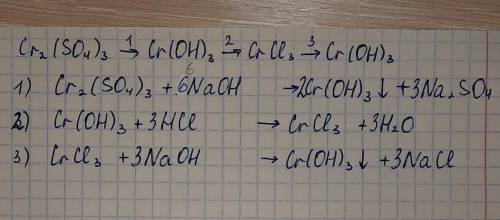 Cr₂(SO₄)₃ →¹ Cr(OH)₃ →² CrCl₃ →³ Cr(OH)₃
1) Cr₂(SO₄)₃ + 6NaOH → 2Cr(OH)₃↓ + 3Na₂SO₄
2) Cr(OH)₃ + 3HCl → CrCl₃ + 3H₂O
3) CrCl₃ + 3NaOH → Cr(OH)₃↓ + 3NaCl